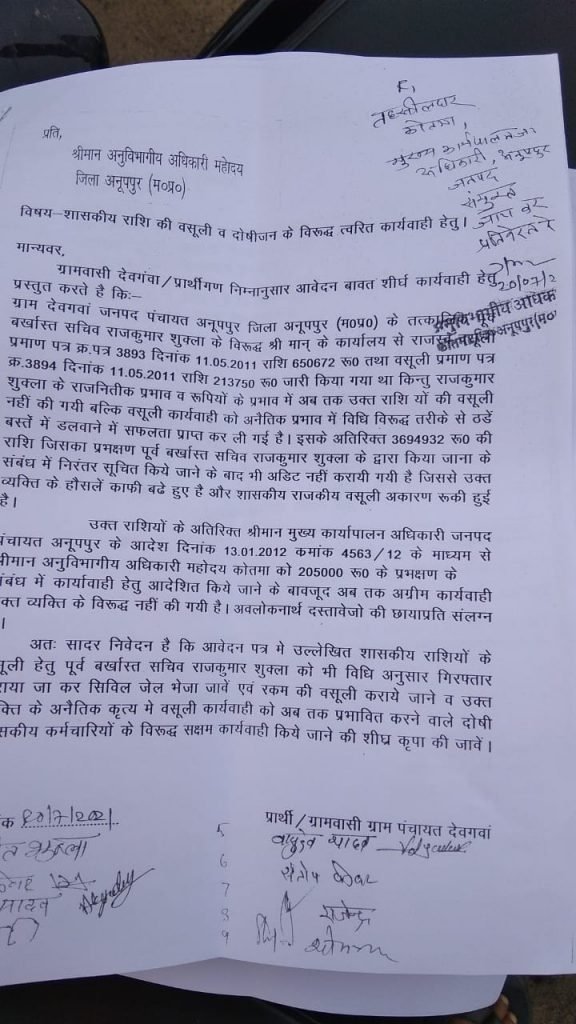 तहसीलदार
कोतमा,
मुख्य कार्यपालन
अधिकारी, अनूपपुर
जनपद
संयुक्त
जांच कर
प्रतिवेदन दे
20/07/2
प्रति,
श्रीमान अनुविभागीय अधिकारी महोदय
जिला अनूपपुर (म०प्र०)
विषय–शासकीय राशि की वसूली व दोषीजन के विरूद्ध त्वरित कार्यवाही हेतु।
मान्यवर,
ग्रामवासी देवगंवा/प्रार्थीगण निम्नानुसार आवेदन बावत शीर्घ कार्यवाही हेतु
प्रस्तुत करते है कि:–
ग्राम देवगवां जनपद पंचायत अनूपपुर जिला अनूपपुर (म०प्र०) के
बर्खास्त सचिव राजकुमार शुक्ला के विरूद्ध श्री मान् के कार्यालय से
प्रमाण पत्र क्र.पत्र 3893 दिनांक 11.05.2011 राशि 650672 रू० तथा वसूली प्रमाण पत्र
क्र.3894 दिनांक 11.05.2011 राशि 213750 रू० जारी किया गया था किन्तु राजकुमार
शुक्ला के राजनितीक प्रभाव व रूपियों के प्रभाव में अब तक उक्त राशि यों की वसूली
नहीं की गयी बल्कि वसूली कार्यवाही को अनैतिक प्रभाव में विधि विरूद्व तरीके से ठडें
बस्तें में डलवाने में सफलता प्राप्त कर ली गई है। इसके अतिरिक्त 3694932 रू० की
राशि जिसका प्रभक्षण पूर्व बर्खास्त सचिव राजकुमार शुक्ला के द्वारा किया जाना के
संबंध में निरंतर सूचित किये जाने के बाद भी अडिट नहीं करायी गयी है जिससे उक्त
व्यक्ति के हौसलें काफी बढे हुए है और शासकीय राजकीय वसूली अकारण रूकी हुई
है।
उक्त राशियों के अतिरिक्त श्रीमान मुख्य कार्यापालन अधिकारी जनपद
पंचायत अनूपपुर के आदेश दिनांक 13.01.2012 कमांक 4563/12 के माध्यम से
श्रीमान अनुविभागीय अधिकारी महोदय कोतमा को 205000 रू० के प्रभक्षण के
संबंध में कार्यवाही हेतु आदेशित किये जाने के बावजूद अब तक अग्रीम कार्यवाही
उक्त व्यक्ति के विरूद्ध नहीं की गयी है। अवलोकनार्थ दस्तावेजो की छायाप्रति संलग्न
।
अतः सादर निवेदन है कि आवेदन पत्र मे उल्लेखित शासकीय राशियों के
सूली हेतु पूर्व बर्खास्त सचिव राजकुमार शुक्ला को भी विधि अनुसार गिरफ्तार
राया जा कर सिविल जेल भेजा जावें एवं रकम की वसूली कराये जाने व उक्त
क्ति के अनैतिक कृत्य मे वसूली कार्यवाही को अब तक प्रभावित करने वाले दोषी
सकीय कर्मचारियों के विरूद्ध सक्षम कार्यवाही किये जाने की शीघ्र कृपा की जावें।
प्रार्थी/ग्रामवासी ग्राम पंचायत देवगवां
5
6
7 राजेन्द्र
8
9